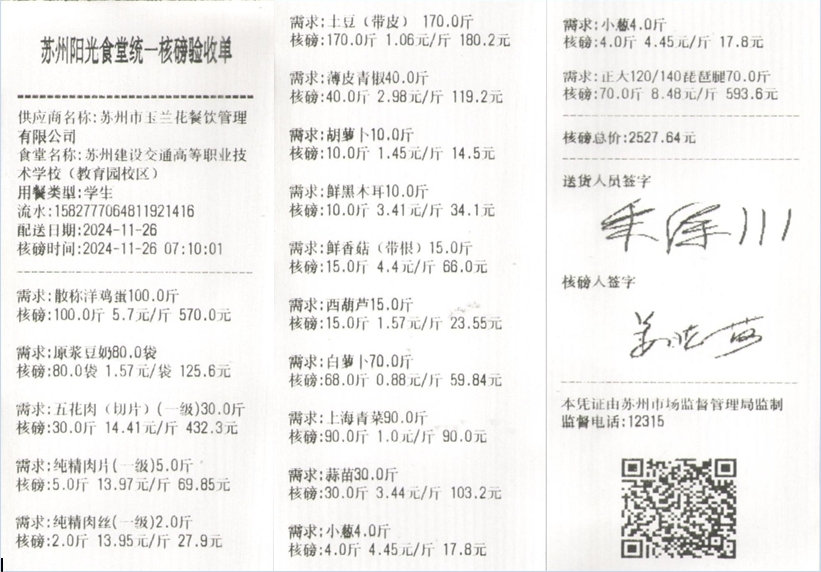 苏州阳光食堂统一核磅验收单
供应商名称:苏州市玉兰花餐饮管理
有限公司
食堂名称:苏州建设交通高等职业技
术学校(教育园校区)
用餐类型:学生
流水:1582777064811921416
配送日期:2024-11-26
核磅时间:2024-11-26 07:10:01
需求:散称洋鸡蛋100.0斤
核磅:100.0斤 5.7元/斤 570.0元
需求:原浆豆奶80.0袋
核磅:80.0袋 1.57元/袋 125.6元
需求:五花肉(切片)(一级)30.0斤
核磅:30.0斤 14.41元/斤 432.3元
需求:纯精肉片(一级)5.0斤
核磅:5.0斤 13.97元/斤 69.85元
需求:纯精肉丝(一级)2.0斤
核磅:2.0斤 13.95元/斤 27.9元
需求:土豆(带皮) 170.0斤
核磅:170.0斤 1.06元/斤 180.2元
需求:薄皮青椒40.0斤
核磅:40.0斤 2.98元/斤 119.2元
需求:胡萝卜10.0斤
核磅:10.0斤 1.45元/斤 14.5元
需求:鲜黑木耳10.0斤
核磅:10.0斤 3.41元/斤 34.1元
需求:鲜香菇(带根)15.0斤
核磅:15.0斤 4.4元/斤 66.0元
需求:西葫芦15.0斤
核磅:15.0斤 1.57元/斤 23.55元
需求:白萝卜70.0斤
核磅:68.0斤 0.88元/斤 59.84元
需求:上海青菜90.0斤
核磅:90.0斤 1.0元/斤 90.0元
需求:蒜苗30.0斤
核磅:30.0斤 3.44元/斤 103.2元
需求:小葱4.0斤
核磅:4.0斤 4.45元/斤 17.8元
需求:小葱4.0斤
核磅:4.0斤 4.45元/斤 17.8元
需求:正大120/140琵琶腿70.0斤
核磅:70.0斤 8.48元/斤 593.6元
核磅总价:2527.64元
送货人员签字
核磅人签字
本凭证由苏州市场监督管理局监制
监督电话:12315